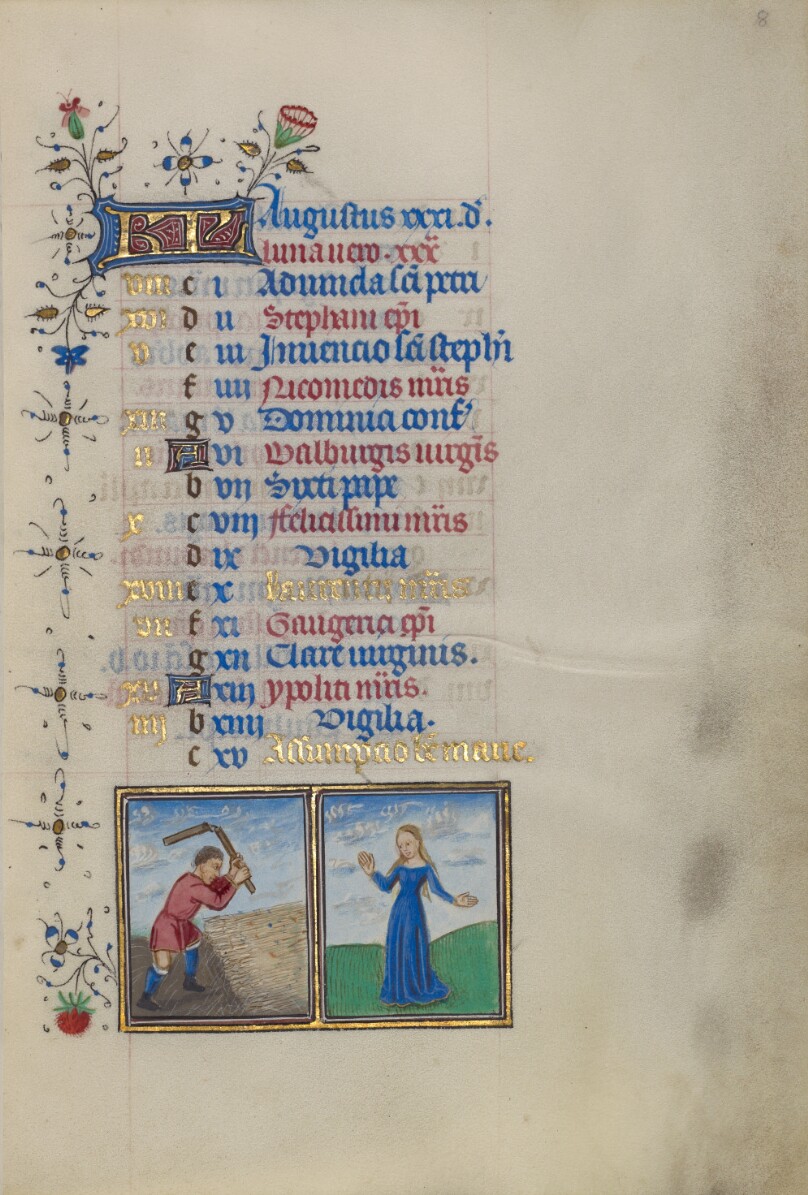 8
KL Augustus xxxi. d'.
luna vero. xxx
viii c i Aduincla sci petri
xvi d ii Stephani epi
v e iii Inuencio sci stephi
f iiii Nicomedis mris
xiii g v Dominici conf'
ii A vi Walburgis uirgis
b vii Sixti pape
x c viii ffelicissimi mris
d ix Vigilia
xviii e x laurentii mris
vii f xi Gaugerici epi
g xii Clare uirginis.
xv A xiii ypoliti mris.
iiii b xiiii Vigilia.
c xv Assumpcio be marie.